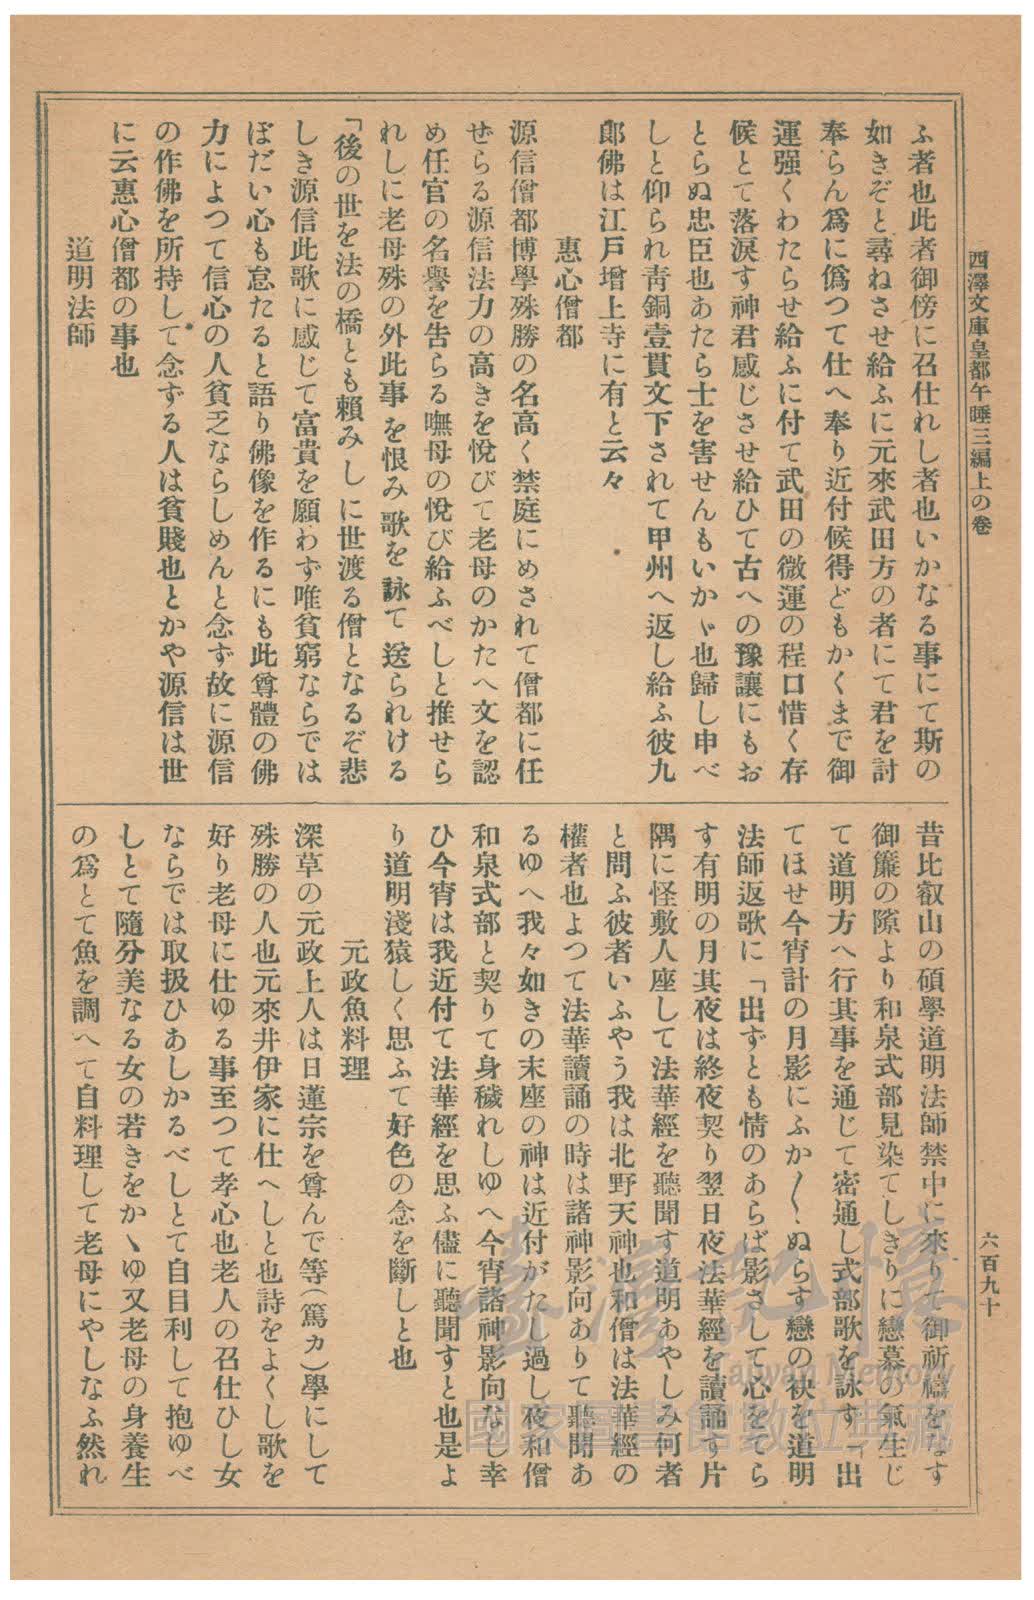 西澤文庫皇都午睡三編上の卷
六百九十
ふ者也此者御傍に召仕れし者也いかなる事にて斯の
如きぞと尋ねさせ給ふに元來武田方の者にて君を討
奉らん爲に僞つて仕へ奉り近付候得どもかくまで御
運强くわたらせ給ふに付て武田の微運の程口惜く存
候とて落淚す神君感じさせ給ひて古への豫讓にもお
とらぬ忠臣也あたら士を害せんもいかゞ也歸し申べ
しと仰られ靑銅壹貫文下されて甲州へ返し給ふ彼九
郞佛は江戶增上寺に有と云々
惠心僧都
源信僧都博學殊勝の名高く禁庭にめされて僧都に任
せらる源信法力の高きを悅びて老母のかたへ文を認
め任官の名譽を吿らる嘸母の悅び給ふべしと推せら
れしに老母殊の外此事を恨み歌を詠て送られける
「後の世を法の橋とも賴みしに世渡る僧となるぞ悲
しき源信此歌に感じて富貴を願わず唯貧窮ならでは
ぼだい心も怠たると語り佛像を作るにも此尊體の佛
力によつて信心の人貧乏ならしめんと念ず故に源信
の作佛を所持して念ずる人は貧賤也とかや源信は世
に云惠心僧都の事也
道明法師
昔比叡山の碩學道明法師禁中に來りて御祈禱をなす
御簾の隙より和泉式部見染てしきりに戀慕の氣生じ
て道明方へ行其事を通じて密通し式部歌を詠す「出
てほせ今宵計の月影にふか〱ぬらす戀の袂を道明
法師返歌に「出ずとも情のあらば影さして心をてら
す有明の月其夜は終夜契り翌日夜法華經を讀誦す片
隅に怪敷人座して法華經を聽聞す道明あやしみ何者
と問ふ彼者いふやう我は北野天神也和僧は法華經の
權者也よつて法華讀誦の時は諸神影向ありて聽聞あ
るゆへ我々如きの末座の神は近付がたし過し夜和僧
和泉式部と契りて身穢れしゆへ今宵諸神影向なし幸
ひ今宵は我近付て法華經を思ふ儘に聽聞すと也是よ
り道明淺猿しく思ふて好色の念を斷しと也
元政魚料理
深草の元政上人は日蓮宗を尊んで等(篤カ)學にして
殊勝の人也元來井伊家に仕へしと也詩をよくし歌を
好り老母に仕ゆる事至つて孝心也老人の召仕ひし女
ならでは取扱ひあしかるべしとて自目利して抱ゆべ
しとて隨分美なる女の若きをかゝゆ又老母の身養生
の爲とて魚を調へて自料理して老母にやしなふ然れ
臺灣記憶
Taiwan Memory
國家圖書館數位典藏